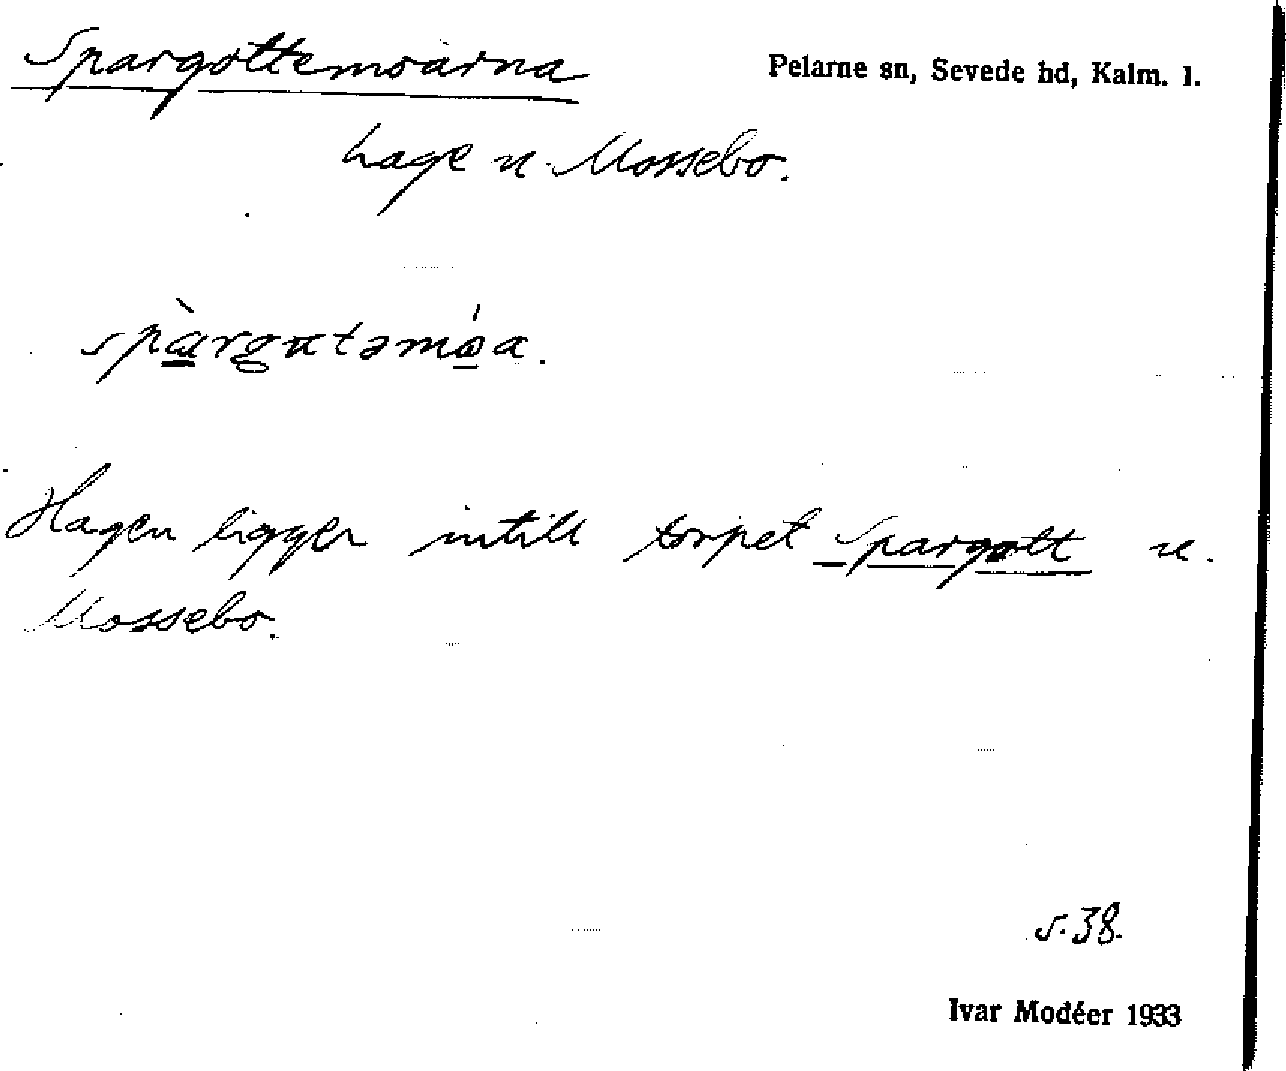 Spargottemoarna
Pelarne sn, Sevede hd, Kalm. l.
hage u. Mossebo.
Hagen ligger intill torpet Spargott u.
Mossebo.
s. 38.
Ivar Modéer 1933